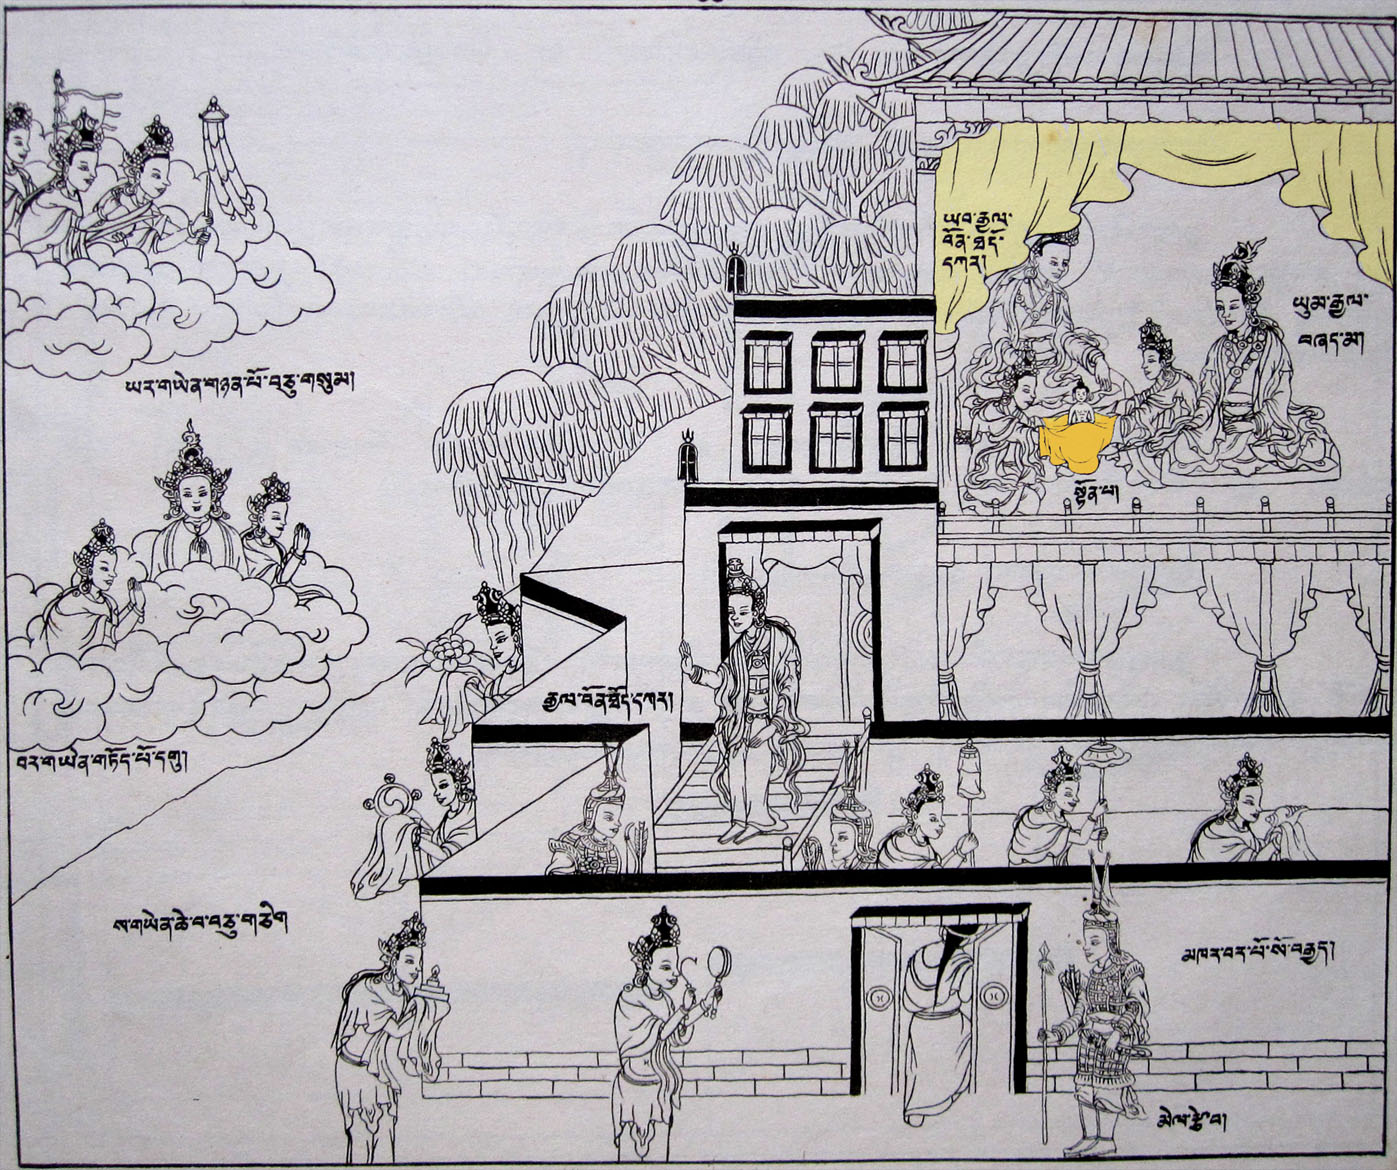 ཡབ་རྒྱལ་
བོན་ཐོད་
དཀར།
ཡུམ་རྒྱལ་
བཞད་མ།
ཡར་གཡེན་གཉན་པོ་བཅུ་གསུམ།
སྟོན་པ།
རྒྱལ་བོན་ཐོད་དཀར།
བར་གཡེན་གཏོད་པོ་དགུ།
ས་གཡེན་ཆེ་བ་བཅུ་གཅིག
མཁར་བར་པོ་སོ་བརྒྱད།